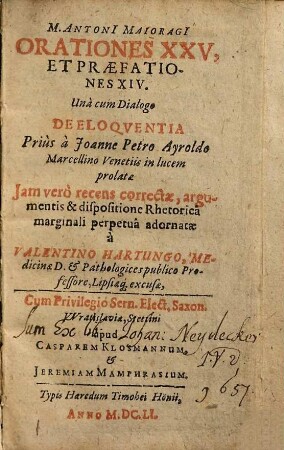 M. ANTONI MAIORAGI
ORATIONES XXV,
ET PRÆFATIO-
NES XIV.
Unà cum Dialogo
DE ELOQVENTIA
Priùs à Joanne Petro Ayroldo
Marcellino Venetiis in lucem
prolatæ
Jam verò recens correctæ, argu-
mentis & dispositione Rhetoricâ
marginali perpetuâ adornatæ
à
VALENTINO HARTUNGO, Me-
dicinæ D. & Pathologices publico Pro-
fessore, Lipsiæq; excusæ,
Cum Privilegio Sern. Elect. Saxon.
Vratislaviæ, Stetini
Sum ex
apud Johan: Neydecker
CASPAREM KLOSMANNUM
I.V.
&
JEREMIAM MAMPHRASIUM.
9657.
Typis Hæredum Timothei Hönii,
ANNO M.DC.LI.